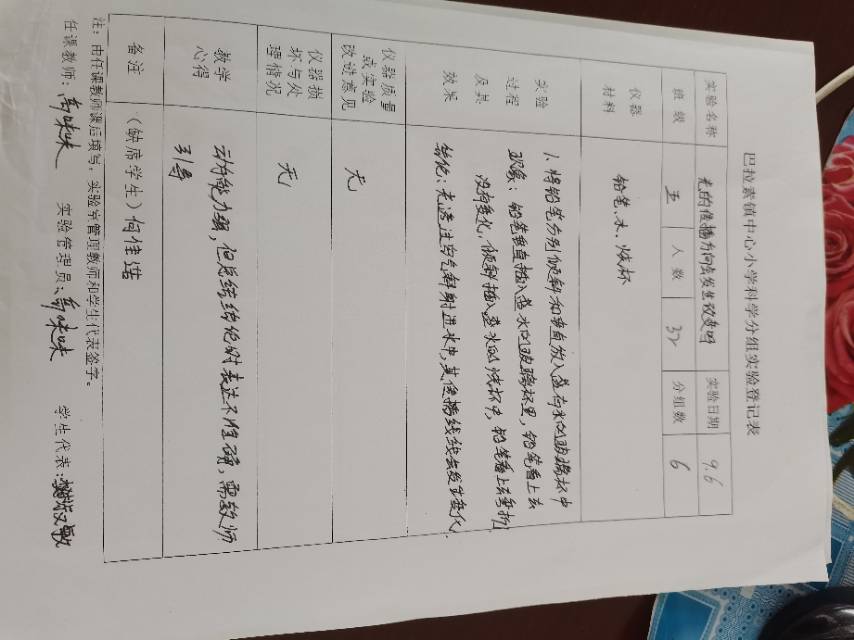 巴拉素镇中心小学科学分组实验登记表
实验名称 光的传播方向会发生改变吗 实验日期 9.6
班级 五 人数 32 分组数 6
仪器
材料
铅笔、水、烧杯
实验
过程
及其
效果
1、将铅笔分别倾斜和垂直放入盛有水的玻璃杯中
现象：铅笔垂直插入盛水的玻璃杯里，铅笔看上去
没有变化，倾斜插入盛水的烧杯中，铅笔看上去弯折
结论：光透过空气斜射进水中，其传播线线会发生变化
仪器质量
或实验
改进意见
无
仪器损
坏与处
理情况
无
教学
心得
动的能力强，但总结结论时表达不准确，需教师
引导
备注 （缺席学生）何佳
注：由任课教师课后填写，实验室管理教师和学生代表签字。
任课教师：高咪咪 实验管理员：高咪咪 学生代表：敏